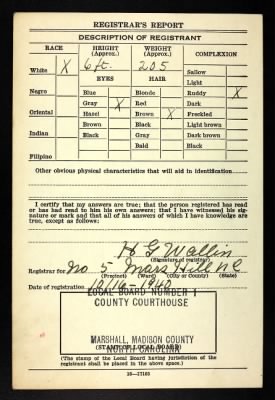 REGISTRAR'S REPORT
DESCRIPTION OF REGISTRANT
RACE HEIGHT (Approx.) WEIGHT (Approx.) COMPLEXION
White X 6 ft. 205 Sallow
EYES HAIR Light
Negro Blue Blonde Ruddy X
Gray X Red Dark
Oriental Hazel Brown X Freckled
Brown Black Light brown
Indian Black Gray Dark brown
Bald Black
Filipino
Other obvious physical characteristics that will aid in identification
I certify that my answers are true; that the person registered has read
or has had read to him his own answers; that I have witnessed his sig-
nature or mark and that all of his answers of which I have knowledge are
true, except as follows:
H G Wallin
(Signature of registrar)
Registrar for No 5 Mars Hill N C
(Precinct) (Ward) (City or County) (State)
Date of registration 10/16-1940
LOCAL BOARD NUMBER 1
COUNTY COURTHOUSE
MARSHALL, MADISON COUNTY
NORTH CAROLINA
(STAMP OF LOCAL BOARD)
(The stamp of the Local Board having jurisdiction of the
registrant shall be placed in the above space.)